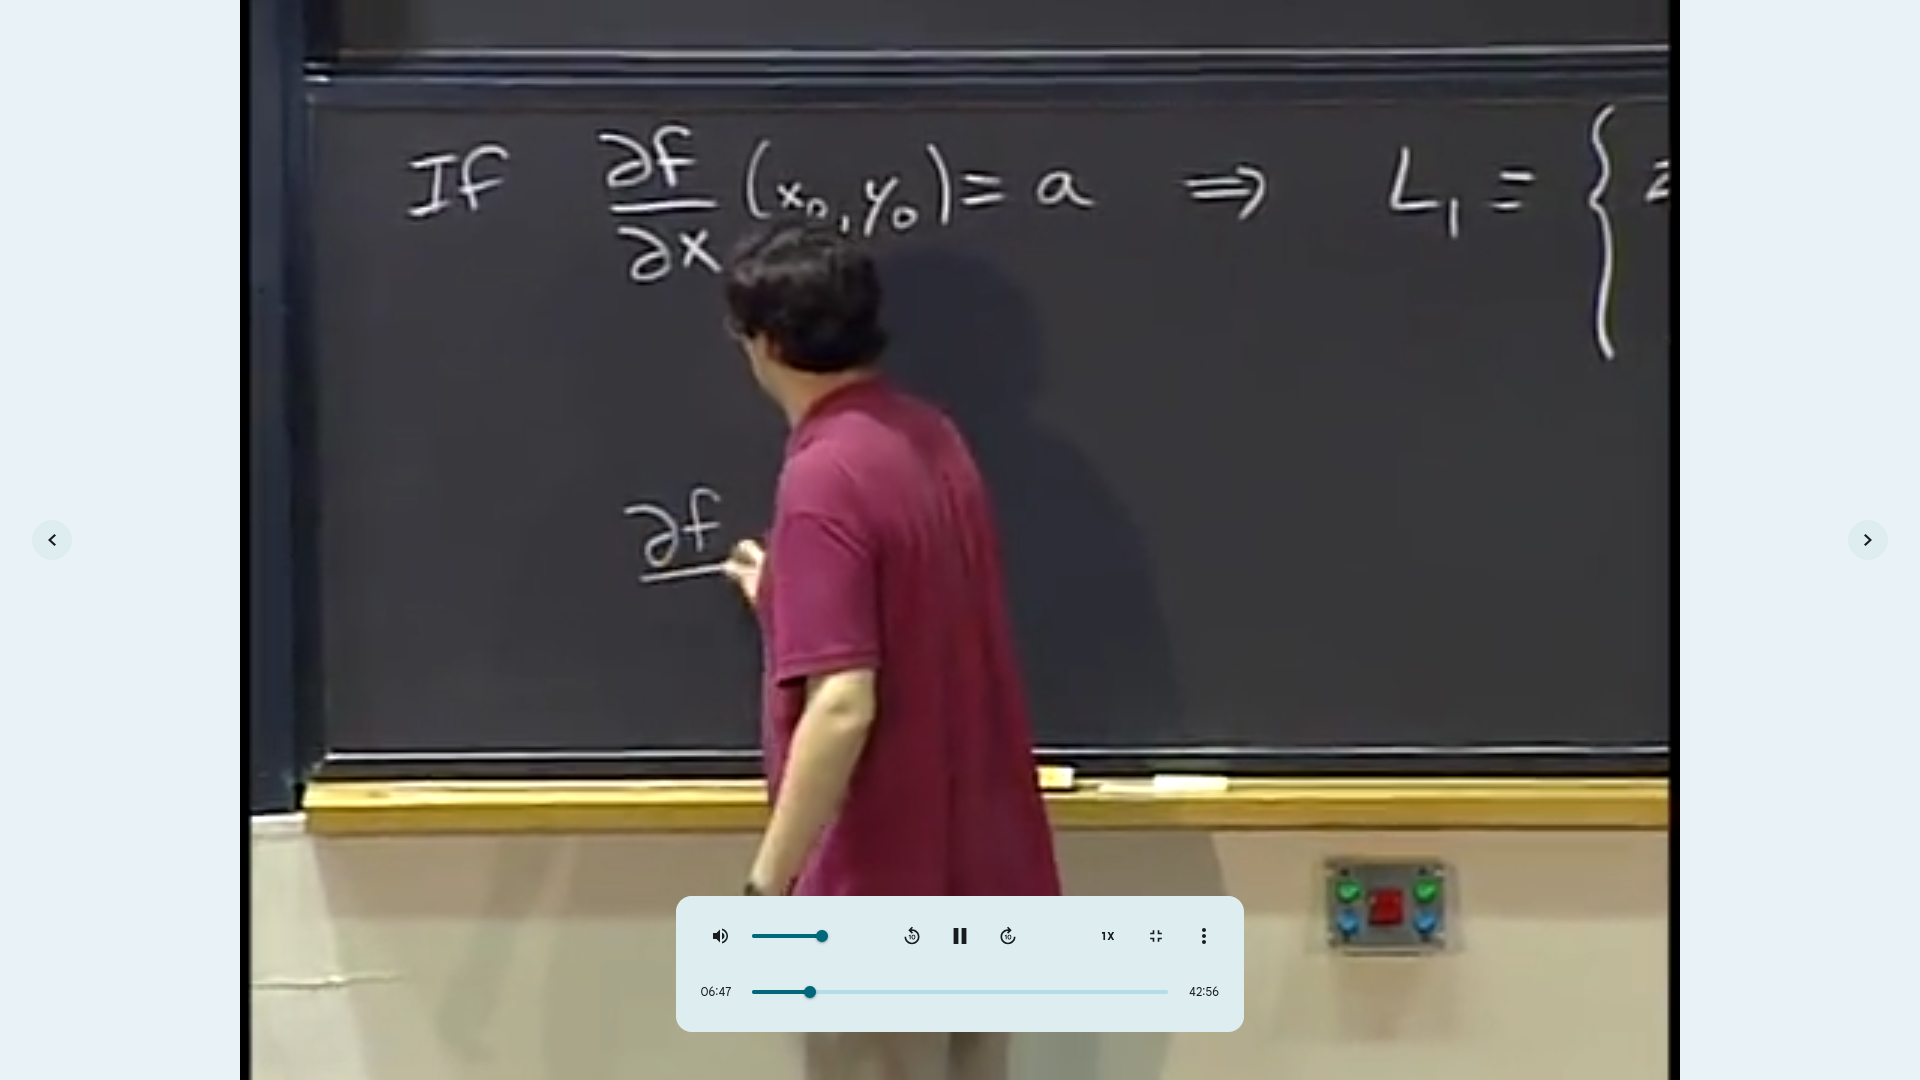 If ∂f/∂x (x₀, y₀) = a ⇒ L₁ = {
∂f
10 10 1X
06:47 42:56